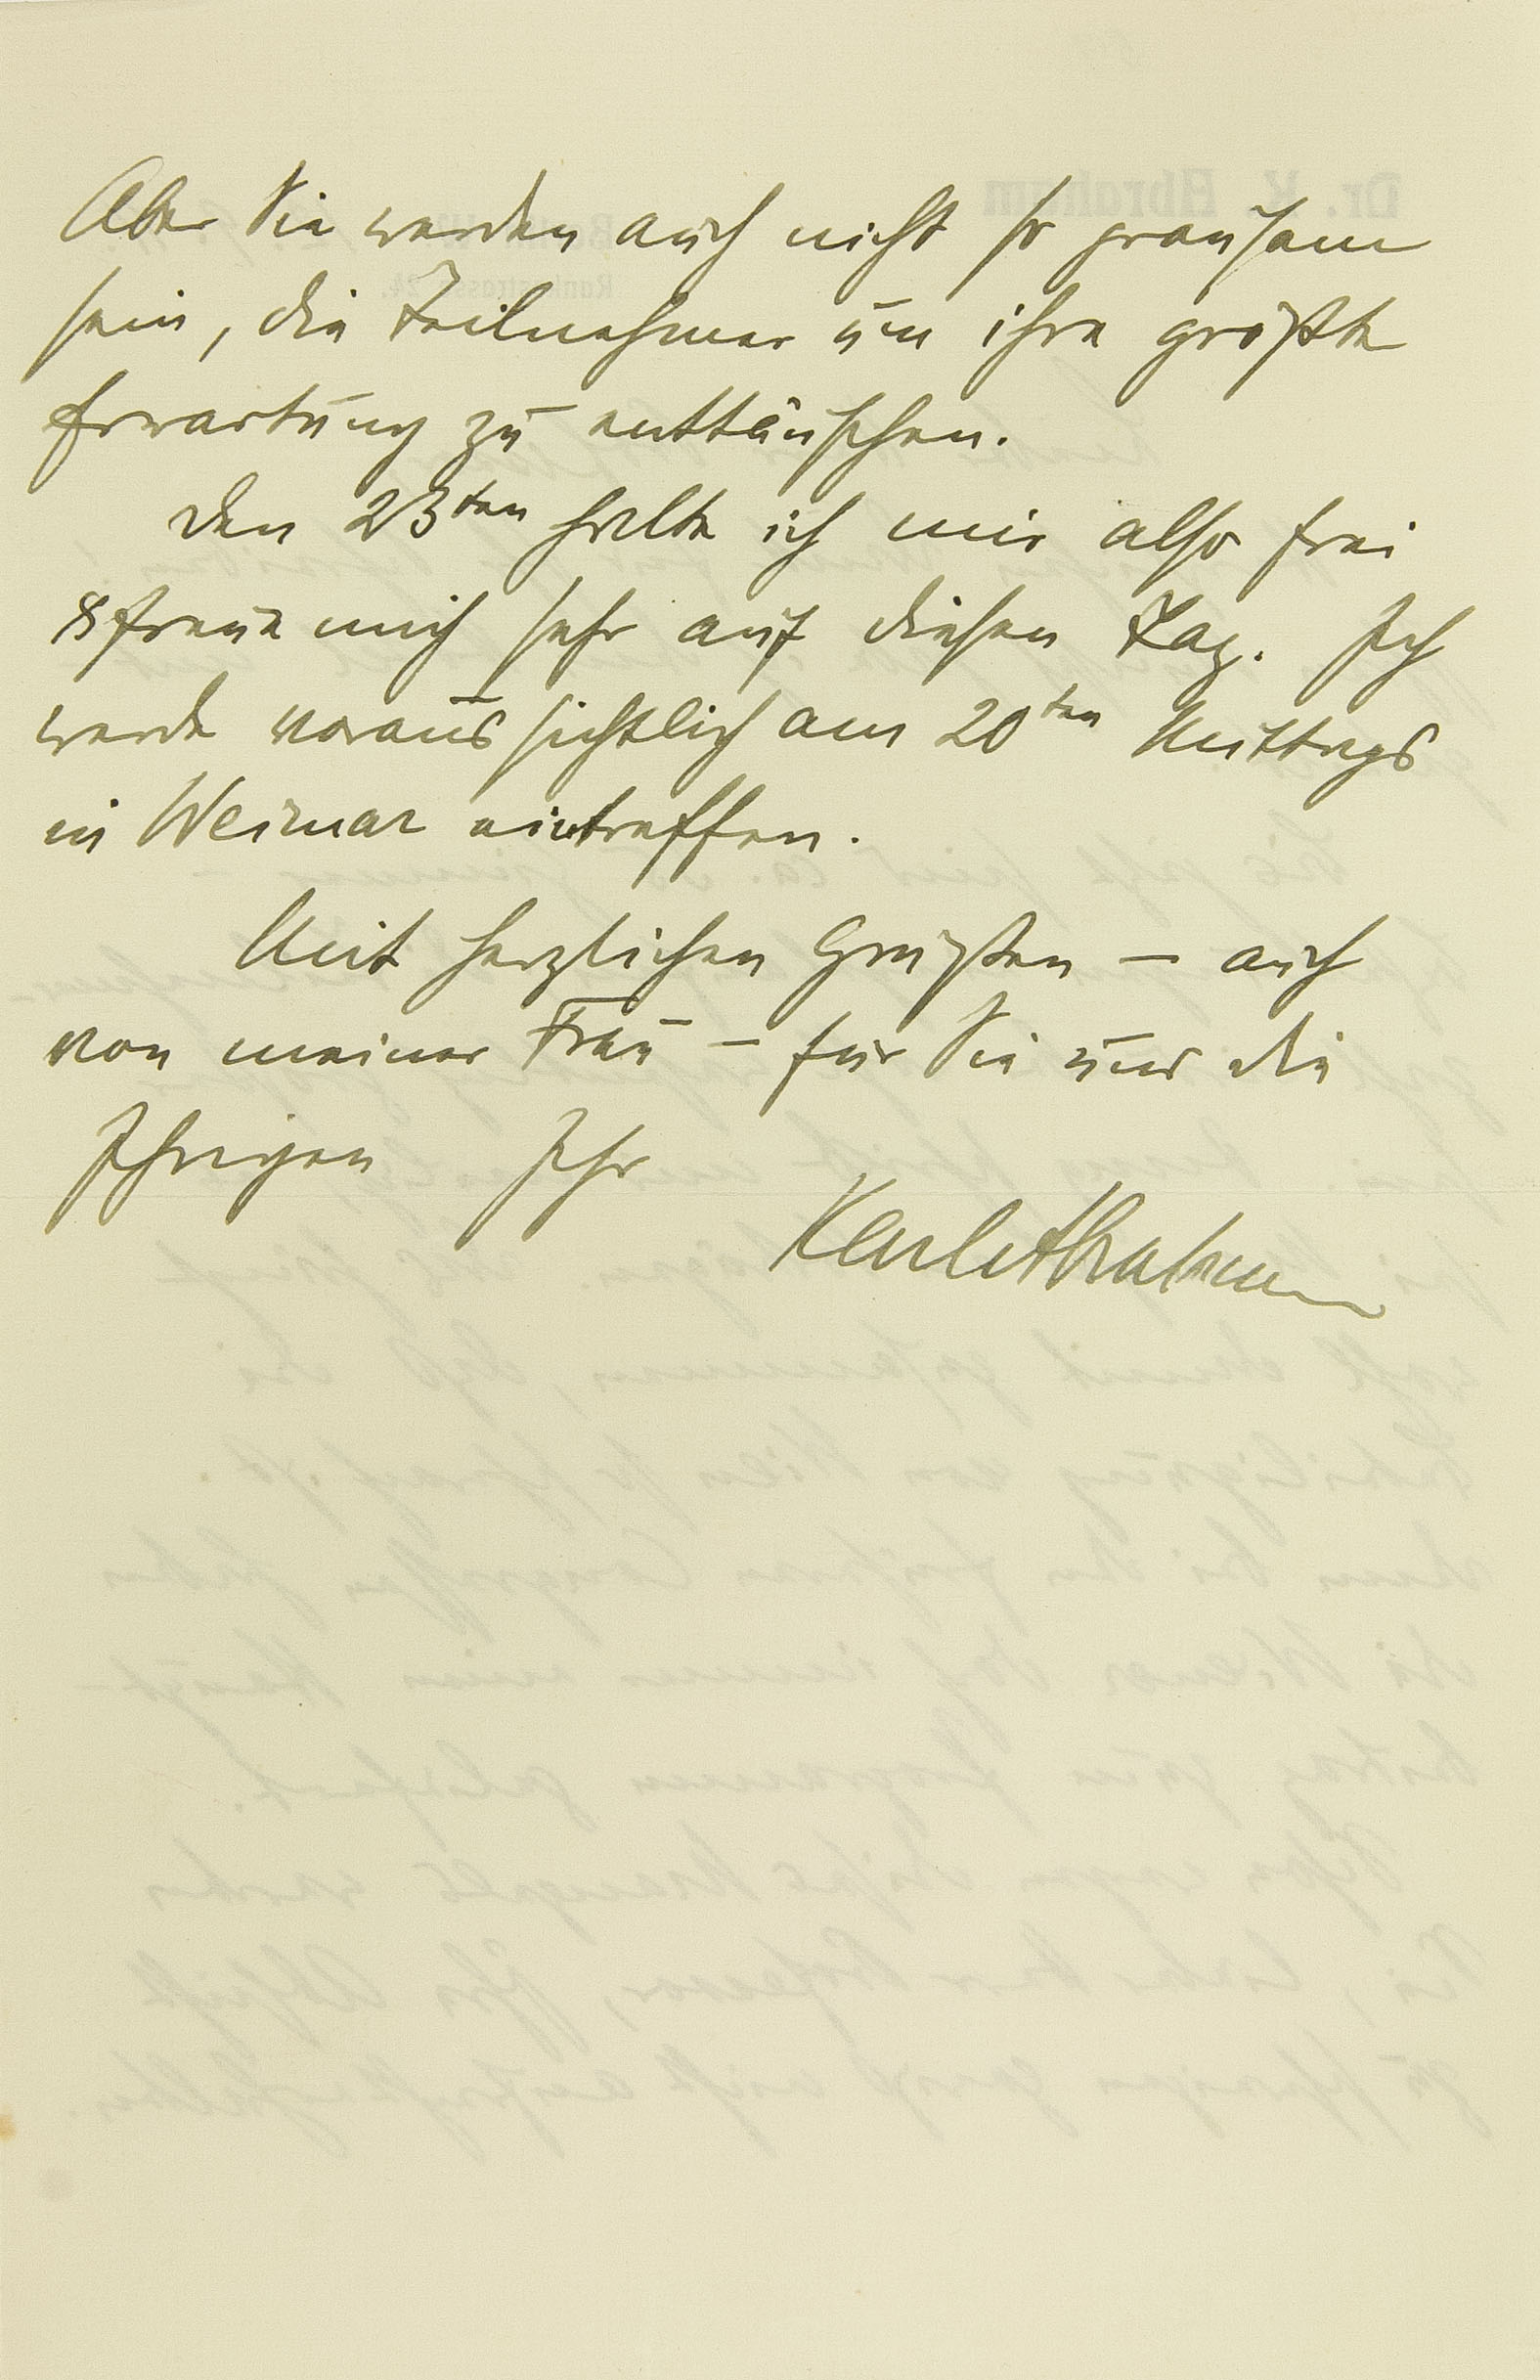 Aber Sie werden auch nicht so grausam
sein, die Teilnehmer um ihre größte
Erwartung zu enttäuschen.
Den 23ten halte ich mir also frei
& freue mich sehr auf diesen Tag. Ich
werde voraussichtlich am 20ten Mittags
in Weimar eintreffen.
Mit herzlichen Grüßen – auch
von meiner Frau – für Sie und die
Ihrigen Ihr
Karl Abraham